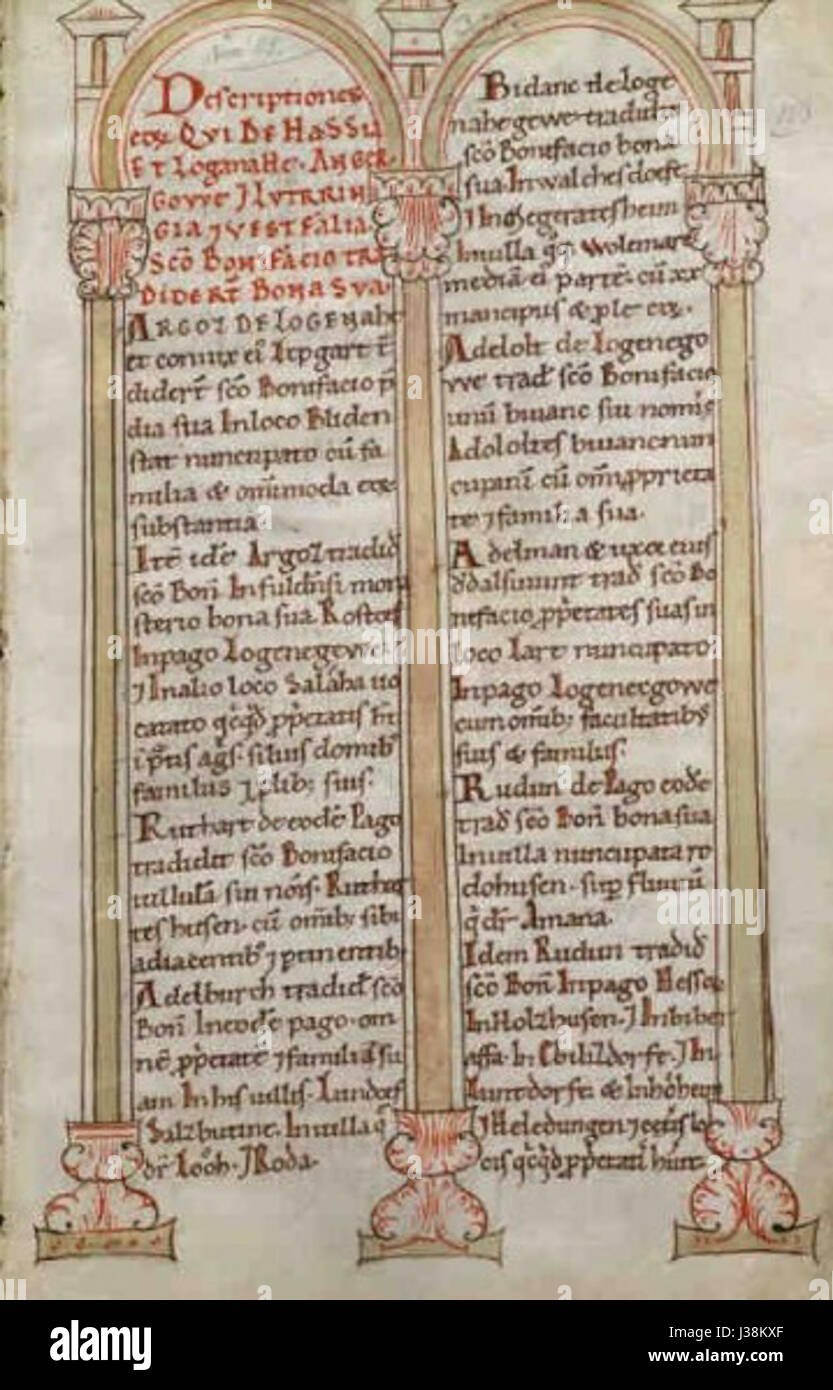 Descriptiones
eoꝝ QVI DE HaSSIa
ET LoganaHe. ANGER-
GOWE ⁊ LVTRRIN
GIA ⁊ VESTFALIA
Scō BONIFACIO TRA
DIDERT̄ BONA SVA.
ARGOZ DE LOGENAHE
et coniux ei᷒ Irpgart t̄
didert̄ scō Bonifacio p̄
dia sua In loco Bliden
stat nuncupato cū fa
milia & omīmoda eoꝝ
substantia.
Itē idē Argoz tradid̄
scō Bon̄ In fuldn̄si mona
sterio bona sua Rostorf
Inpago Logenegewe.
⁊ Inalio loco Salaha uo
familiis ⁊ plib; suis.
Ruthart de eodē Pago
tradidit scō Bonifacio
uillulā sui nōis. Ruthar
tes husen. cū omīb; sibi
adiacentib᷒ ⁊ ptinentib᷒
Adelburch tradid̄ scō
Bon̄ Ineodē pago. om
nē ꝓp̄etatē ⁊ familiā su
am In his uillis. Lundorf
Salzbutine. Inuilla q̄
dr̄ Looh. ⁊ Roda.
Bidanc de loge
nahegewe tradidit
scō Bonifacio bona
sua. Inwalchesdorfe
⁊ Inhegeratesheim
Inuilla q̄ Wolemare
mediā ei᷒ partē. cū xx
mancipiis & ple eoꝝ.
Adelolt de Logenego
we trad̄ scō Bonifacio
unū biuanc sui nomīs
Adololtes biuanc nun
cupatū cū omī ꝓprieta
te ⁊ familia sua.
Adelman & uxor eius
trad̄ scō Bo
nifacio ꝓp̄etates suas in
loco Lare nuncupato
Inpago Logenegowe
cum omīb; facultatib᷒
suis & familiis.
Rudun de Pago eodē
trad̄ scō Bon̄ bona sua
Inuilla nuncupata ro
dohusen. sup fluuiū
q̄ dr̄ Amana.
Idem Rudun tradid̄
scō Bon̄ Inpago Hessen
In Holzhusen. ⁊ Inbiber
affa. In Ebilizdorfe. ⁊ In
Luntdorfe. & Inhoheim
⁊ Heledungen ⁊ cetis lo
alamy
J38KXF
www.alamy.com